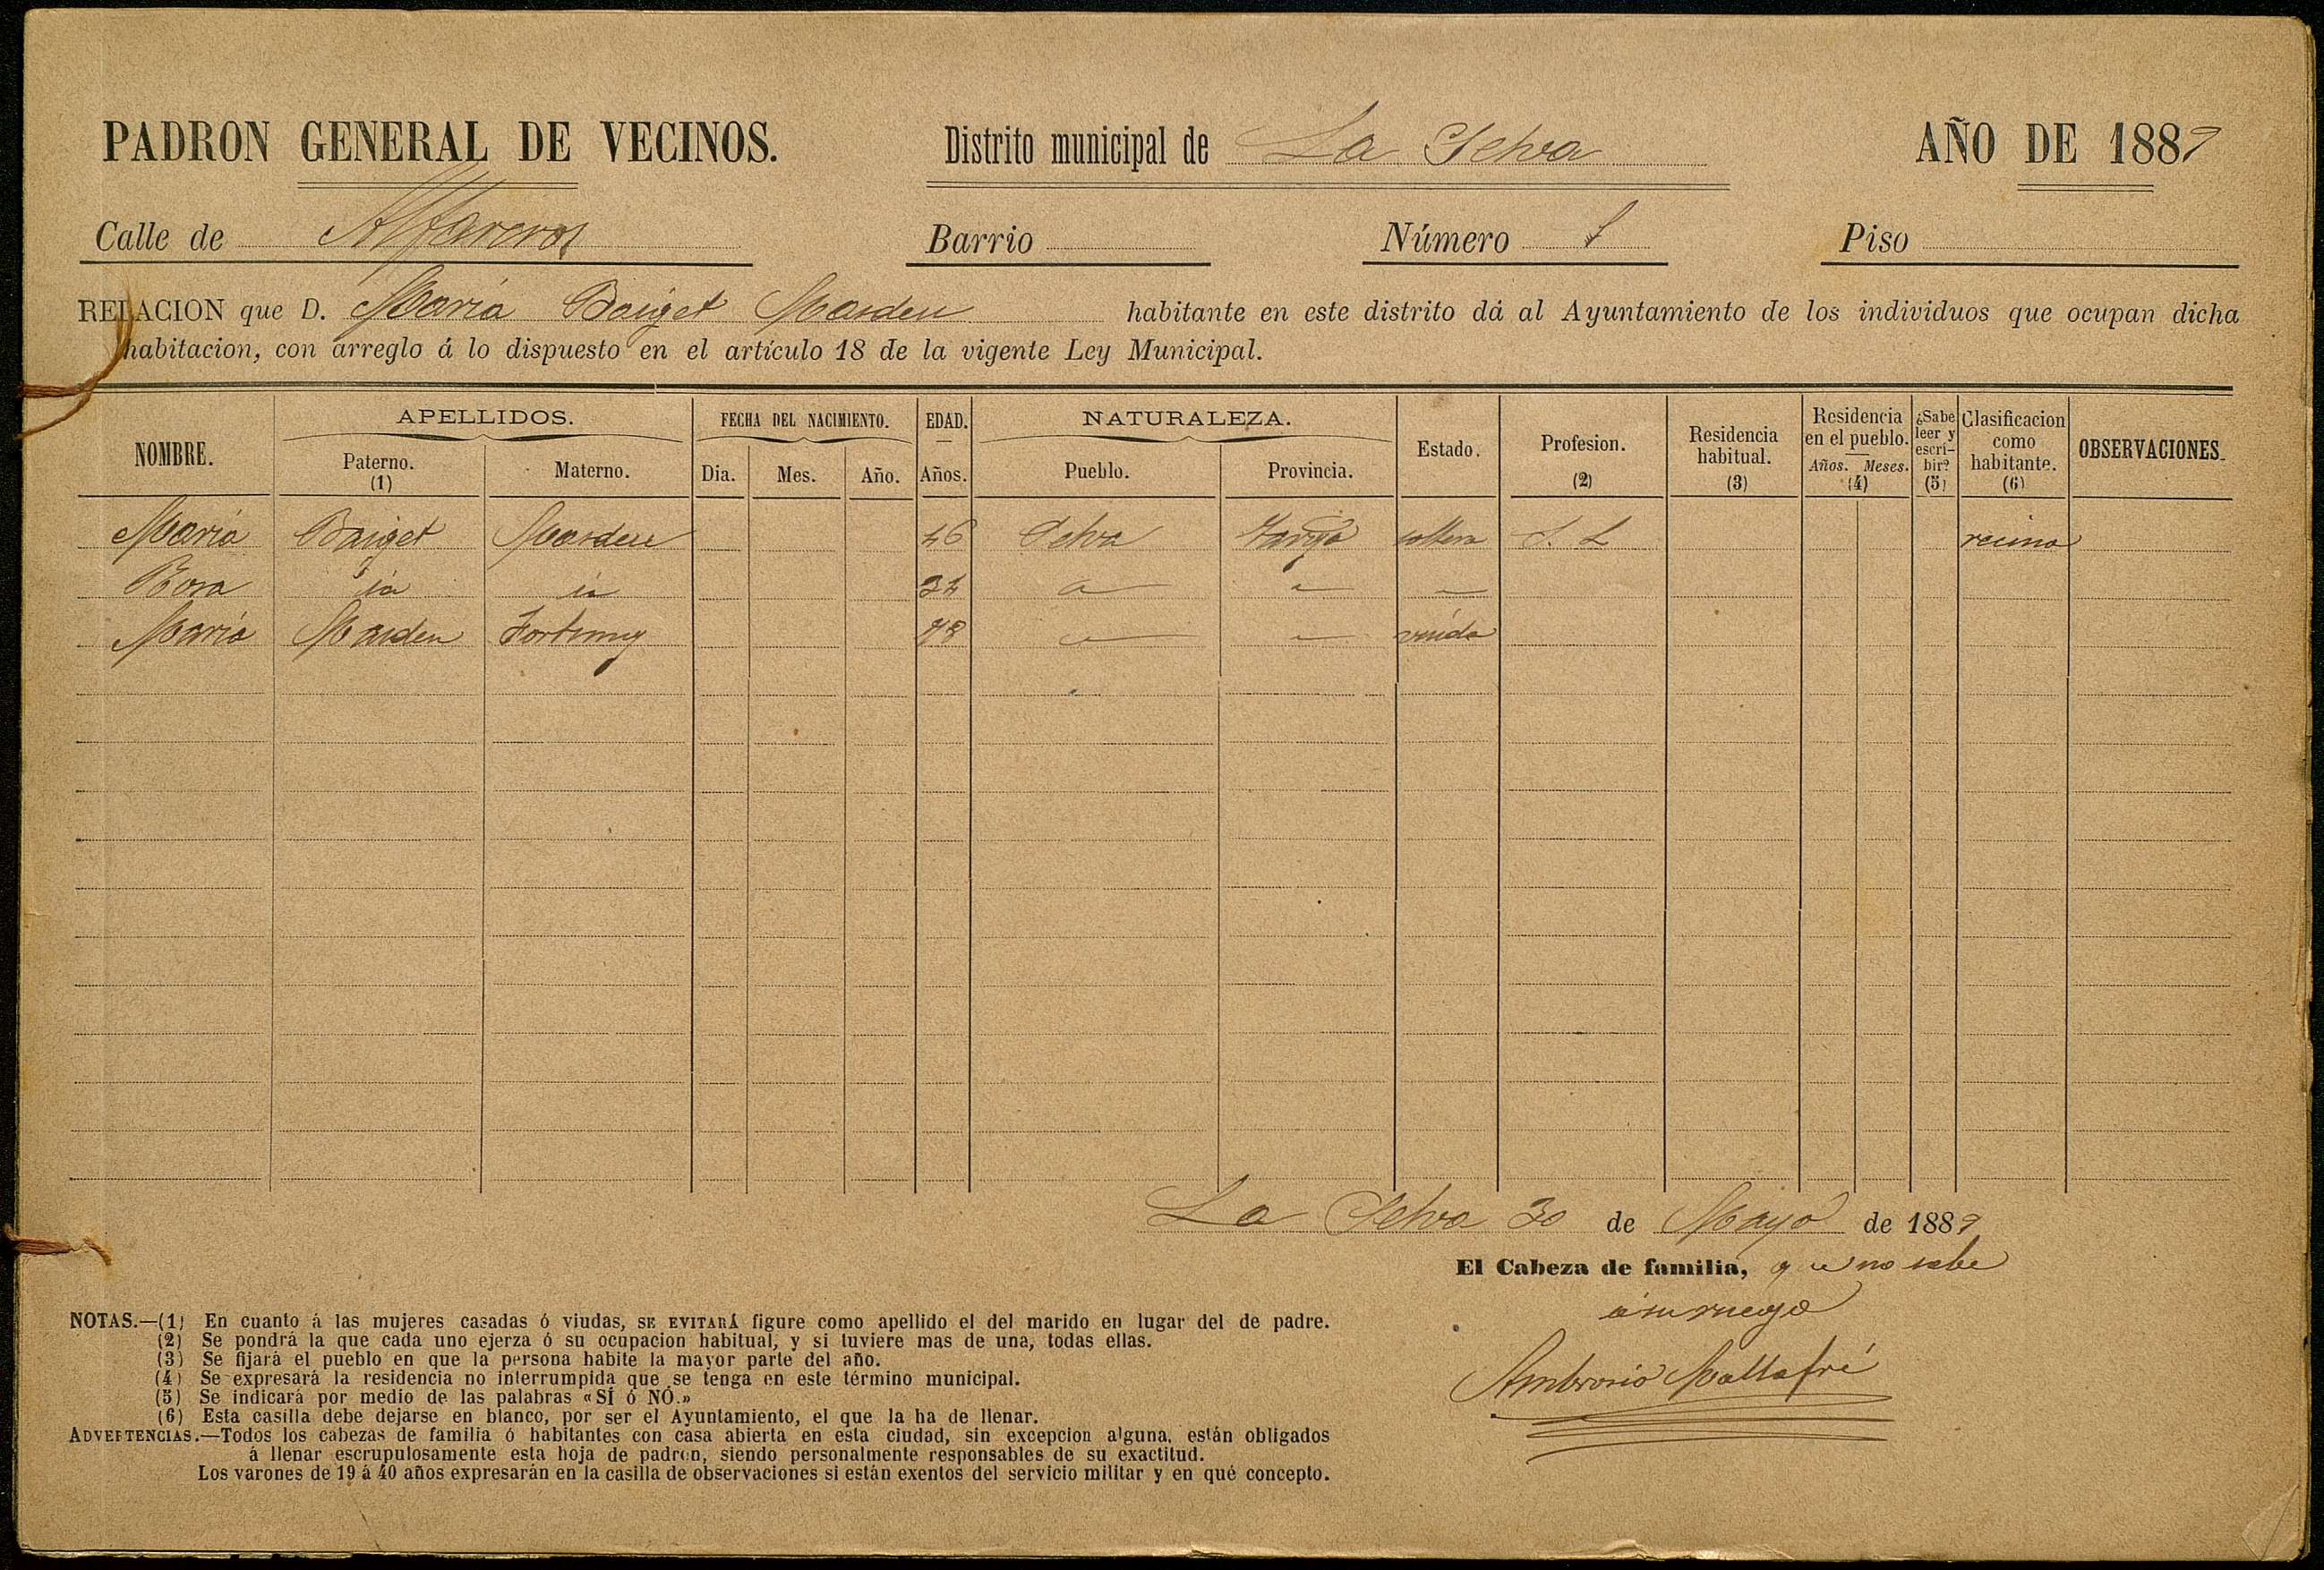 PADRON GENERAL DE VECINOS. Distrito municipal de La Selva AÑO DE 1889
Calle de Alfareros Barrio Número 1 Piso
RELACION que D. Maria Baiget Masdeu habitante en este distrito dá al Ayuntamiento de los individuos que ocupan dicha
habitacion, con arreglo á lo dispuesto en el artículo 18 de la vigente Ley Municipal.
NOMBRE. APELLIDOS. Paterno. (1) Materno. FECHA DEL NACIMIENTO. Dia. Mes. Año. EDAD. Años. NATURALEZA. Pueblo. Provincia. Estado. Profesion. (2) Residencia habitual. (3) Residencia en el pueblo. Años. Meses. (4) ¿Sabe leer y escri-bir? (5) Clasificacion como habitante. (6) OBSERVACIONES.
Maria Baiget Masdeu 46 Selva soltera S. L vecina
Rosa id id 34 " " "
Maria Masdeu Fortuny 78 " " viuda
La Selva 30 de Mayo de 1889
El Cabeza de familia, que no sabe
á su ruego
Ambrosio Mallafré
NOTAS.—(1) En cuanto á las mujeres casadas ó viudas, SE EVITARÁ figure como apellido el del marido en lugar del de padre.
(2) Se pondrá la que cada uno ejerza ó su ocupacion habitual, y si tuviere mas de una, todas ellas.
(3) Se fijará el pueblo en que la persona habite la mayor parte del año.
(4) Se expresará la residencia no interrumpida que se tenga en este término municipal.
(5) Se indicará por medio de las palabras «SÍ ó NÓ.»
(6) Esta casilla debe dejarse en blanco, por ser el Ayuntamiento, el que la ha de llenar.
ADVERTENCIAS.—Todos los cabezas de familia ó habitantes con casa abierta en esta ciudad, sin excepcion alguna, están obligados
á llenar escrupulosamente esta hoja de padron, siendo personalmente responsables de su exactitud.
Los varones de 19 á 40 años expresarán en la casilla de observaciones si están exentos del servicio militar y en qué concepto.